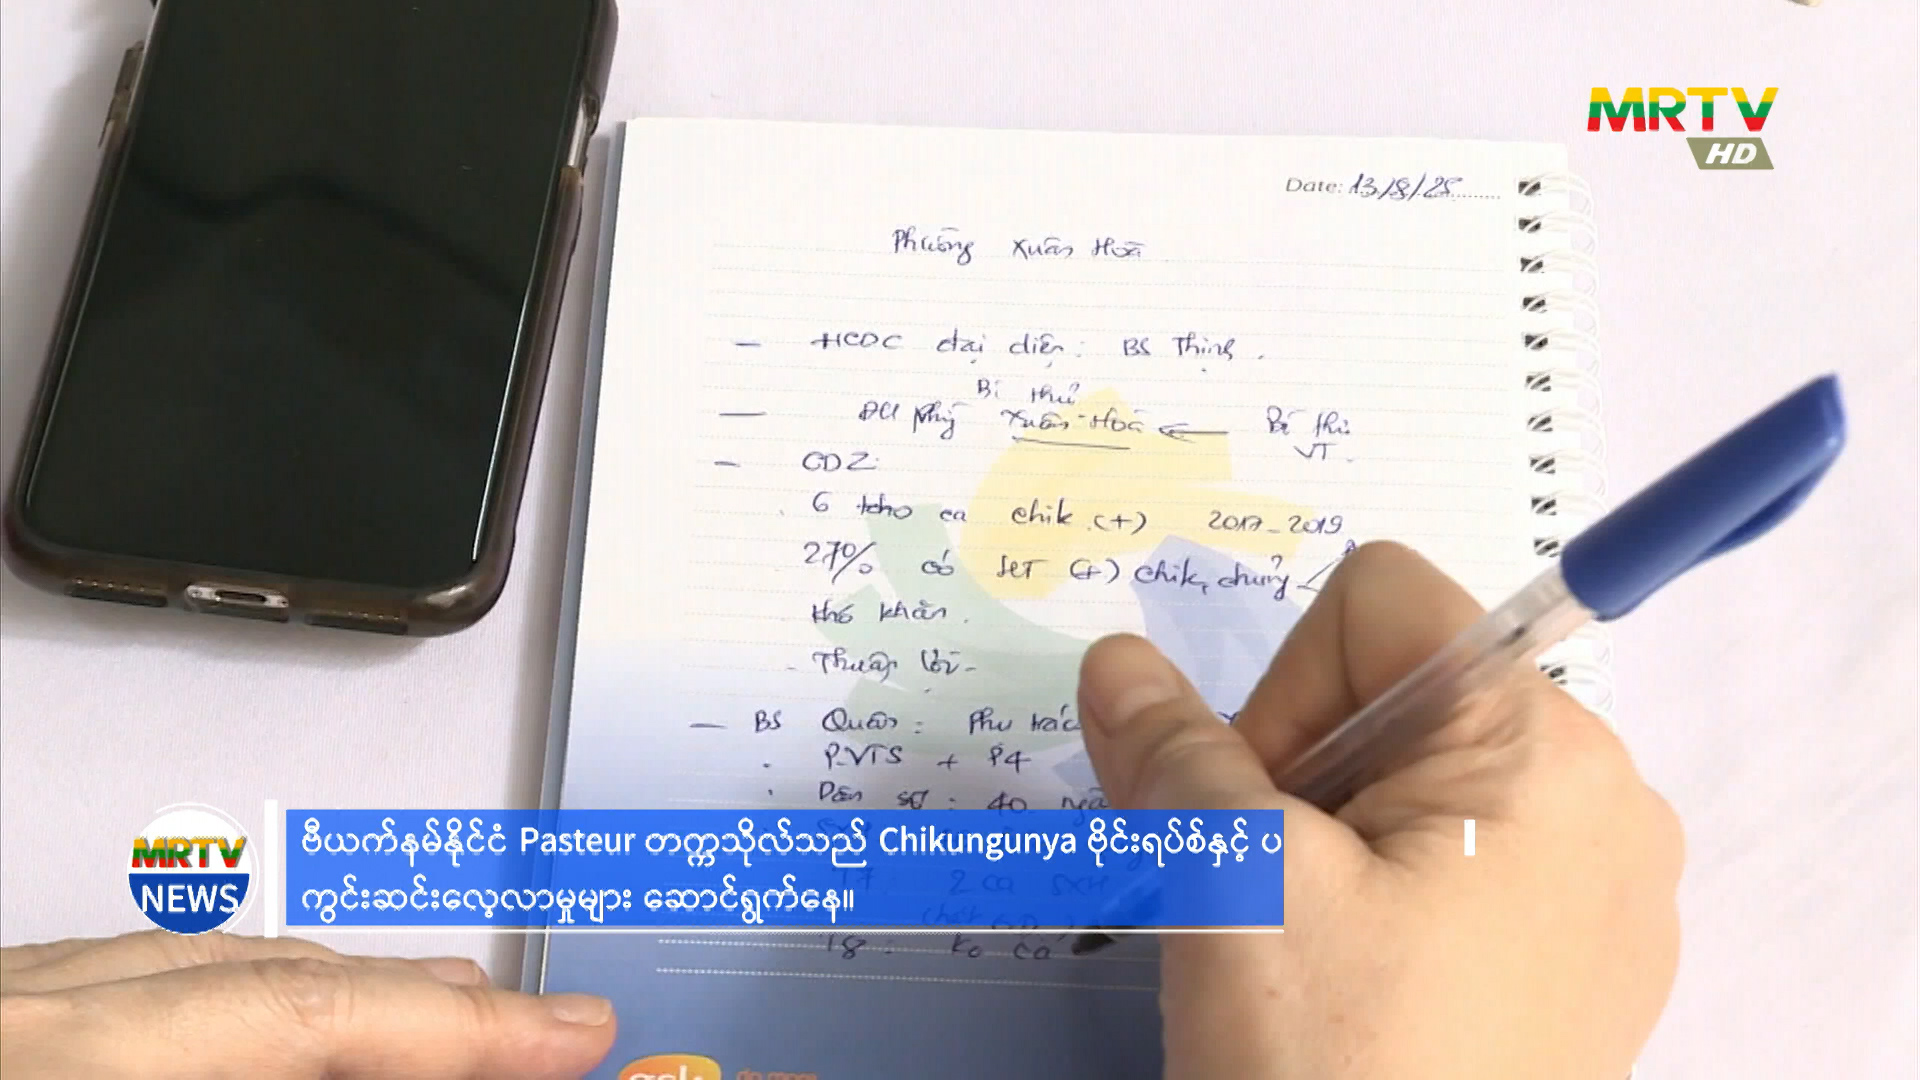 MRTV
HD
Date: 13/8/25
Phường Xuân Hoà
- HCDC đại diện: BS Thịnh.
Bí thư
- ĐU phg Xuân Hoà ← Bí thư
VT.
- CDZ:
6 kho ca chik (+) 2017-2019
27% có SET (+) chik, chủng
khó khăn.
- Thuận lợi -
- BS Quân: Phụ trác
. P.VTS + P4
. Dân số: 40 ngà
MRTV
NEWS
ဗီယက်နမ်နိုင်ငံ Pasteur တက္ကသိုလ်သည် Chikungunya ဗိုင်းရပ်စ်နှင့် ပ
ကွင်းဆင်းလေ့လာမှုများ ဆောင်ရွက်နေ။
T7: 2 ca SXH
T8: Ko ca
gsk do more